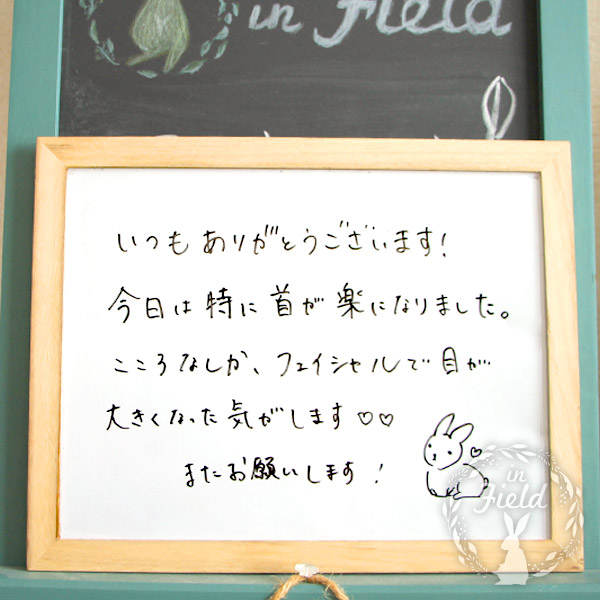 in Field
いつもありがとうございます!
今日は特に首が楽になりました。
こころなしか、フェイシャルで目が
大きくなった気がします♡♡
またお願いします!
in
Field